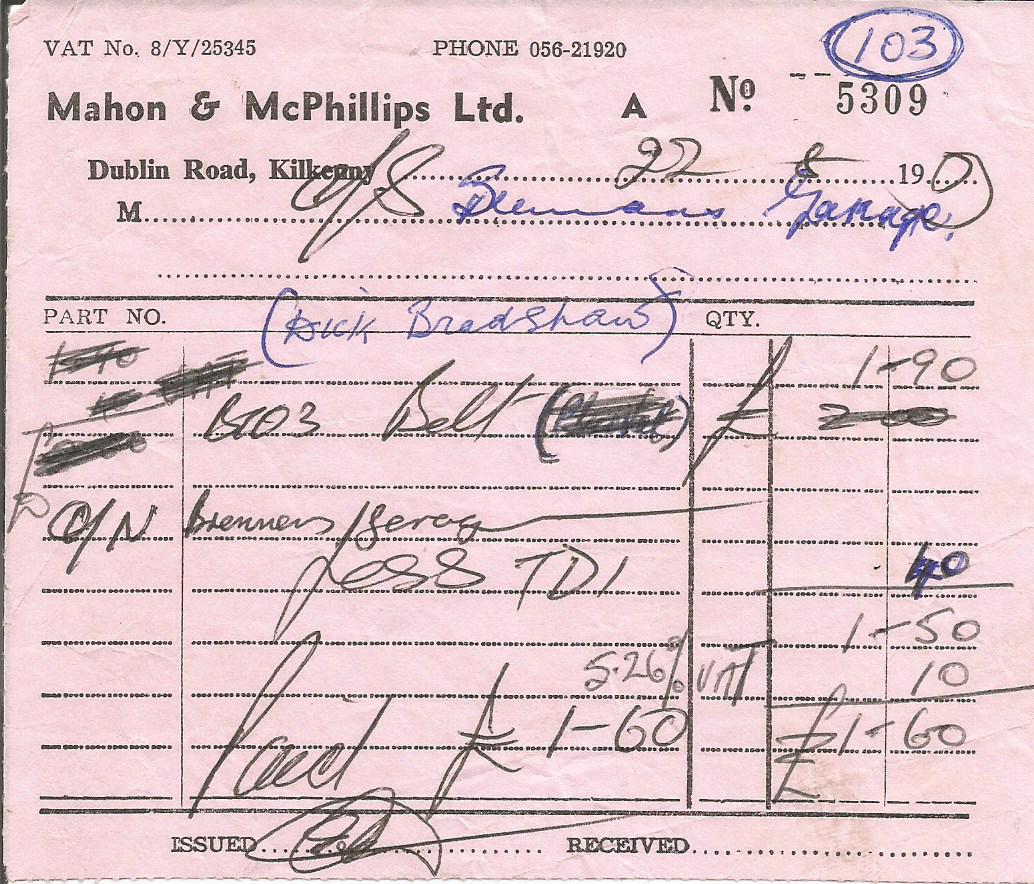 103
VAT No. 8/Y/25345 PHONE 056-21920
Mahon & McPhillips Ltd. A No. 5309
Dublin Road, Kilkenny 22 8 19
M Garage,
PART NO. (Dick Bradshaw) QTY.
£ 1-90
B103 Belt
O/N Brennans
Less TDI 40
1-50
5.26% VAT 10
Paid £1-60 £1-60
£
ISSUED RECEIVED